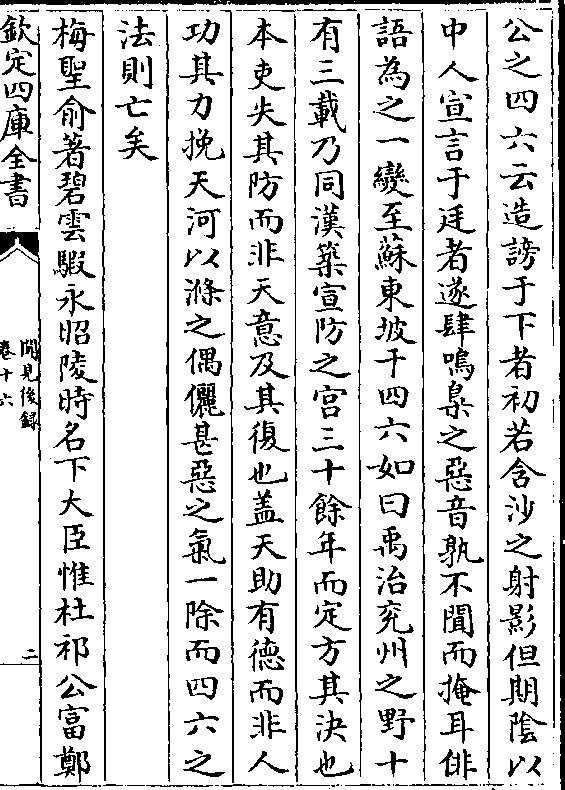 公之四六云造謗于下者初若含沙之射影但期隂以
中人宣言于廷者遂肆鳴梟之惡音孰不聞而掩耳俳
語為之一變至蘇東坡于四六如曰禹治兖州之野十
有三載乃同漢築宣防之宫三十餘年而定方其決也
本吏失其防而非天意及其復也盖天助有德而非人
功其力挽天河以滌之偶儷甚惡之氣一除而四六之
法則亡矣
梅聖俞著碧雲騢永昭陵時名下大臣惟杜祁公富鄭
欽定四庫全書
聞見後錄
卷十六
二